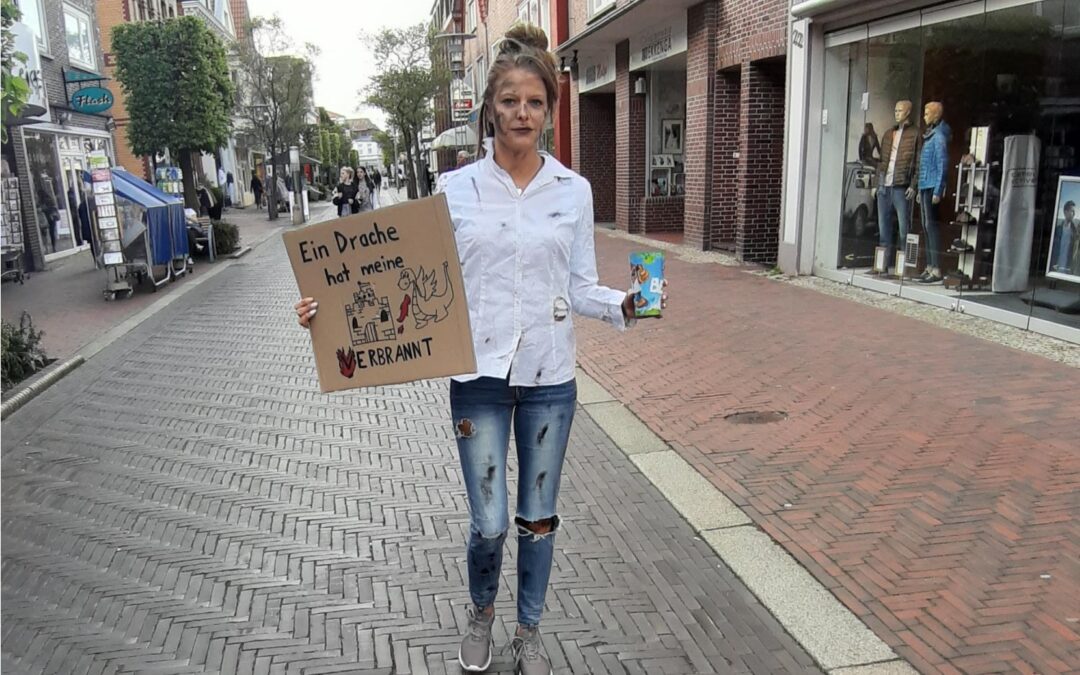 Flash
202
Ein Drache
hat meine
VERBRANNT